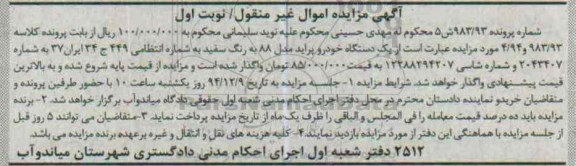 آگهی مزایده اموال غیر منقول/ نوبت اول
شماره پرونده ۹۸۳/۹۳ش۵ محکوم له مهدی حسینی محکوم علیه نوید سلیمانی محکوم به ۱۰۰/۰۰۰/۰۰۰ ریال از بابت پرونده کلاسه
۹۸۳/۹۳ و ۴/۹۴ مورد مزایده عبارت است از یک دستگاه خودرو پراید مدل ۸۸ به رنگ سفید به شماره انتظامی ۴۴۹ ج ۳۴ ایران۳۷ به شماره
۲۰۴۳۴۰۷ و شماره شاسی ۱۲۲۸۸۲۹۴۲۰۷ به قیمت ۸۵/۰۰۰/۰۰۰ تومان واگذار شده است و مزایده از قیمت پایه شروع شده و به بالاترین
قیمت پیشنهادی واگذار خواهد شد. شرایط مزایده ۱- جلسه مزایده به تاریخ ۹۴/۱۲/۹ روز یکشنبه ساعت ۱۰ با حضور طرفین پرونده و
متقاضیان خرید و نماینده دادستان محترم در محل دفتر اجرای احکام مدنی شعبه اول حقوقی دادگاه میاندوآب برگزار خواهد شد. ۲- برنده
مزایده باید ده درصد قیمت معامله را فی المجلس و الباقی را ظرف یک ماه از تاریخ مزایده پرداخت نماید. ۳- متقاضیان می توانند ۵ روز قبل
از جلسه مزایده با هماهنگی این دفتر از مورد مزایده بازدید نمایند ۴- کلیه هزینه های نقل و انتقال و غیره برعهده برنده مزایده می باشد.
۲۵۱۲ دفتر شعبه اول اجرای احکام مدنی دادگستری شهرستان میاندوآب